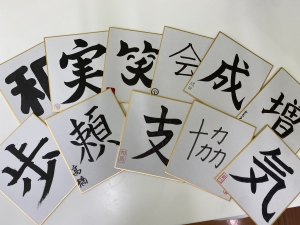 和
実
笑
会
成
増
歩
頼
支
協
気